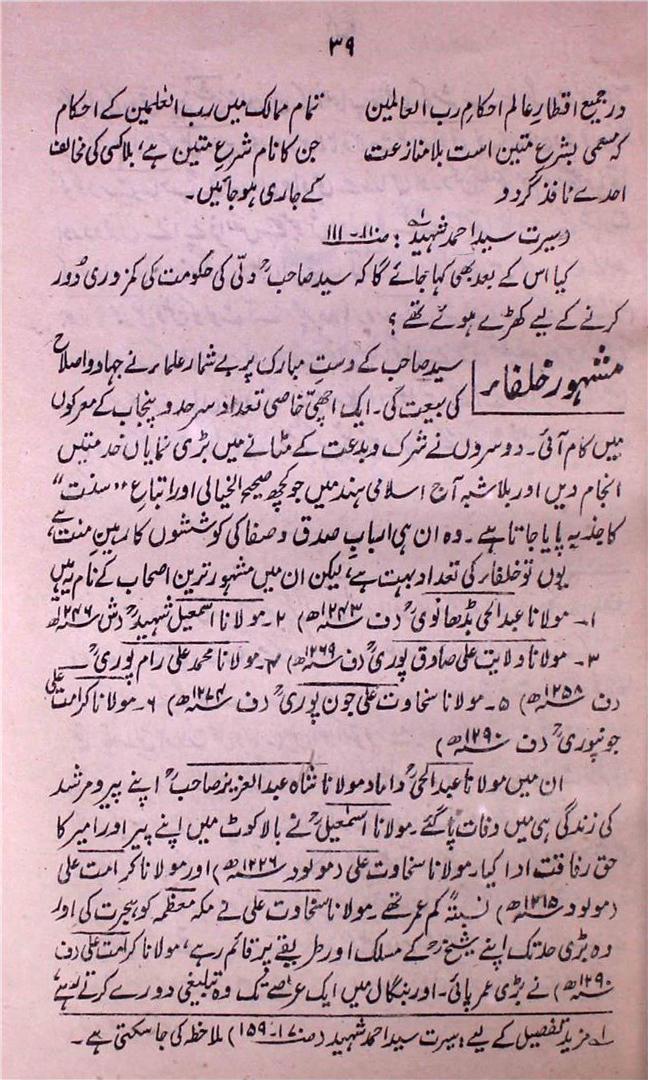 ۳۹
در جمیع اقطارِ عالم احکامِ رب العالمین
کہ مسمی بشرع متین است بلا منازعت
احدے نافذ گردو
تمام ممالک میں رب العٰلمین کے احکام
جن کا نام شرع متین ہے، بلا کسی کی مخالفت
کے جاری ہو جائیں۔
(سیرت سید احمد شہیدؒ ؎۱: صـ۱۱۰-۱۱۱
کیا اس کے بعد بھی کہا جائے گا کہ سید صاحبؒ دلّی کی حکومت کی کمزوری دُور
کرنے کے لیے کھڑے ہوئے تھے؟
مشہور خلفاء
سید صاحب کے دستِ مبارک پر بے شمار علماء نے جہاد و اصلاح
کی بیعت کی۔ ایک اچھی خاصی تعداد سرحد و پنجاب کے معرکوں
میں کام آئی۔ دوسروں نے شرک و بدعت کے مٹانے میں بڑی نمایاں خدمتیں
انجام دیں اور بلا شبہ آج اسلامی ہند میں جو کچھ صحیح الخیالی اور اتباعِ "سنت"
کا جذبہ پایا جاتا ہے۔ وہ ان ہی اربابِ صدق و صفا کی کوششوں کا رہینِ منت ہے،
یوں تو خلفاء کی تعداد بہت ہے، لیکن ان میں مشہور ترین اصحاب کے نام یہ ہیں
۱۔ مولانا عبدالحی بڈھانویؒ (ف ۱۲۴۳ھ) ۲۔ مولانا اسمٰعیل شہیدؒ (ش ۱۲۴۶ھ
۳۔ مولانا ولایت علی صادق پوریؒ (ف ۱۲۶۹ھ) ۴۔ مولانا محمد علی رام پوریؒ
(ف ۱۲۵۸ھ) ۵۔ مولانا سخاوت علی جون پوریؒ (ف ۱۲۷۴ھ) ۶۔ مولانا کرامت علی
جونپوریؒ (ف ۱۲۹۰ھ)
ان میں مولانا عبدالحیؒ داماد مولانا شاہ عبدالعزیز صاحبؒ اپنے پیر و مرشد
کی زندگی ہی میں وفات پا گئے۔ مولانا اسمٰعیلؒ نے بالاکوٹ میں اپنے پیر اور امیر کا
حق رفاقت ادا کیا۔ مولانا سخاوت علی (مولود ۱۲۲۶ھ) اور مولانا کرامت علی
(مولود ۱۲۱۵ھ) نسبۃً کم عمر تھے۔ مولانا سخاوت علی نے مکہ معظمہ کو ہجرت کی اور
وہ بڑی حد تک اپنے شیخؒ کے مسلک اور طریقے پر قائم رہے، مولانا کرامت علی (ف
۱۲۹۰ھ) نے بڑی عمر پائی۔ اور بنگال میں ایک عرصے تک وہ تبلیغی دورے کرتے رہے،
؎۱ مزید تفصیل کے لیے: سیرت سید احمد شہید (صـ۱۷-۱۵۹) ملاحظہ کی جا سکتی ہے۔